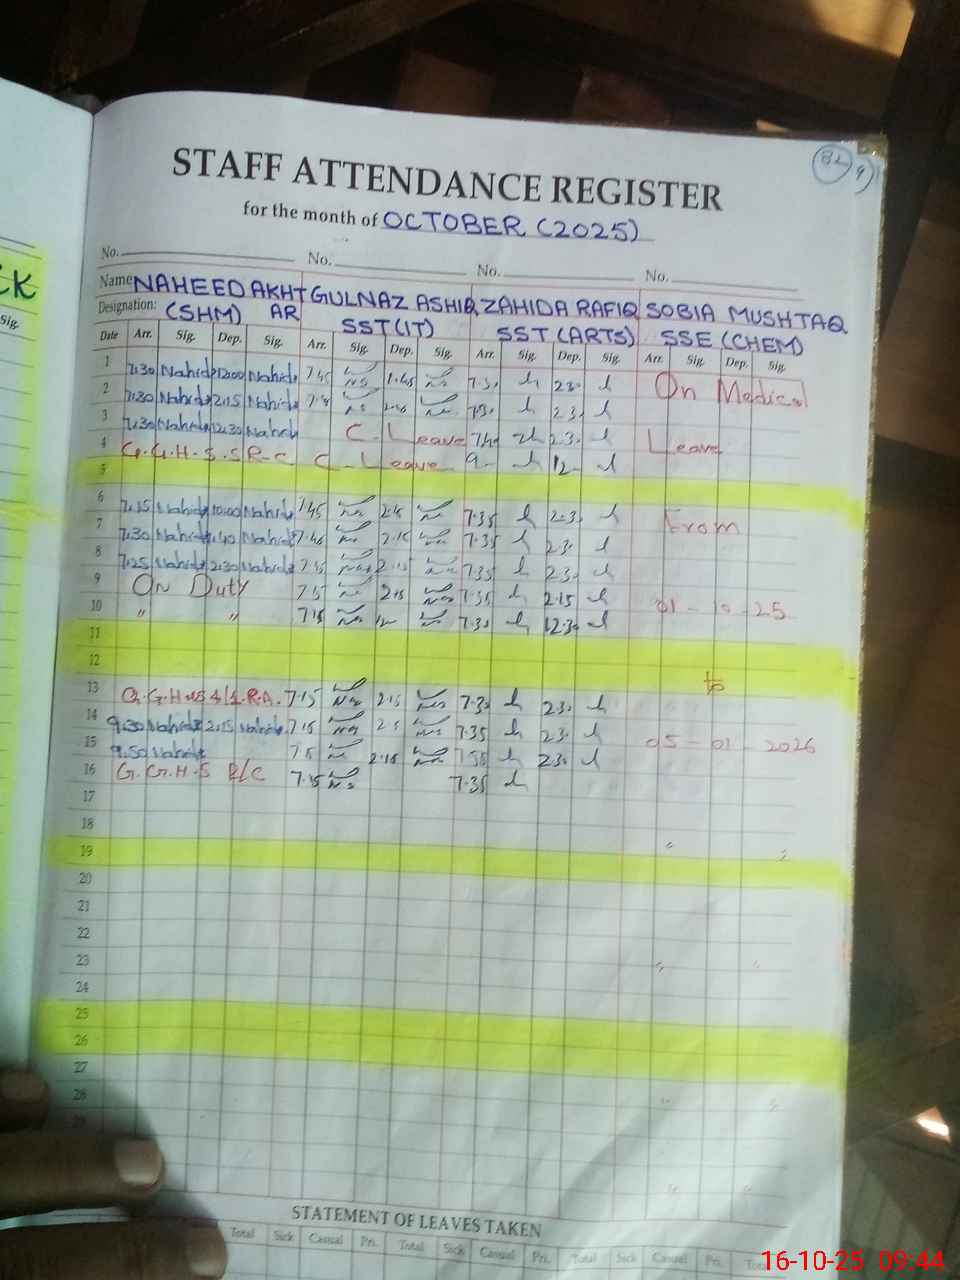 STAFF ATTENDANCE REGISTER
for the month of OCTOBER (2025)
No. No. No. No.
Name NAHEED AKHTAR GULNAZ ASHIQ ZAHIDA RAFIQ SOBIA MUSHTAQ
Designation: (SHM) SST (IT) SST (ARTS) SSE (CHEM)
Date Arr. Sig. Dep. Sig. Arr. Sig. Dep. Sig. Arr. Sig. Dep. Sig. Arr. Sig. Dep. Sig.
1 7.30 Nahid 12:00 Nahid 7.45 1.45 7.3 2.3 On Medical
2 7.30 Nahid 2.15 Nahid 7.30 2.3
3 7.30 Nahid 12.30 Nahid C-Leave 7.40 2.3 Leave
4 G.G.H.S.S R-C C-Leave 9 12
5
6 7.15 Nahid 10:00 Nahid 7.45 2.15 7.35 2.3 From
7 7.30 Nahid Nahid 7.40 2.15 7.35 2.3
8 7.25 Nahid 2.30 Nahid 7.15 2.15 7.35 2.3
9 On Duty 7.15 2.15 7.35 2.15 01-10-25
10 " " 7.15 12 7.30 12.30
11
12
13 7.15 2.15 7.30 2.30 to
14 9.30 Nahid 2.15 Nahid 7.15 2.15 7.35 2.30
15 9.50 Nahid 7.15 2.15 7.35 2.30 05-01-2026
16 G.G.H.S R/C 7.15 7.35
17
18
19
20
21
22
23
24
25
26
27
28
29
STATEMENT OF LEAVES TAKEN
Total Sick Casual Pri. Total Sick Casual Pri. Total Sick Casual Pri. Total
CK
Sig.
16-10-25 09:44